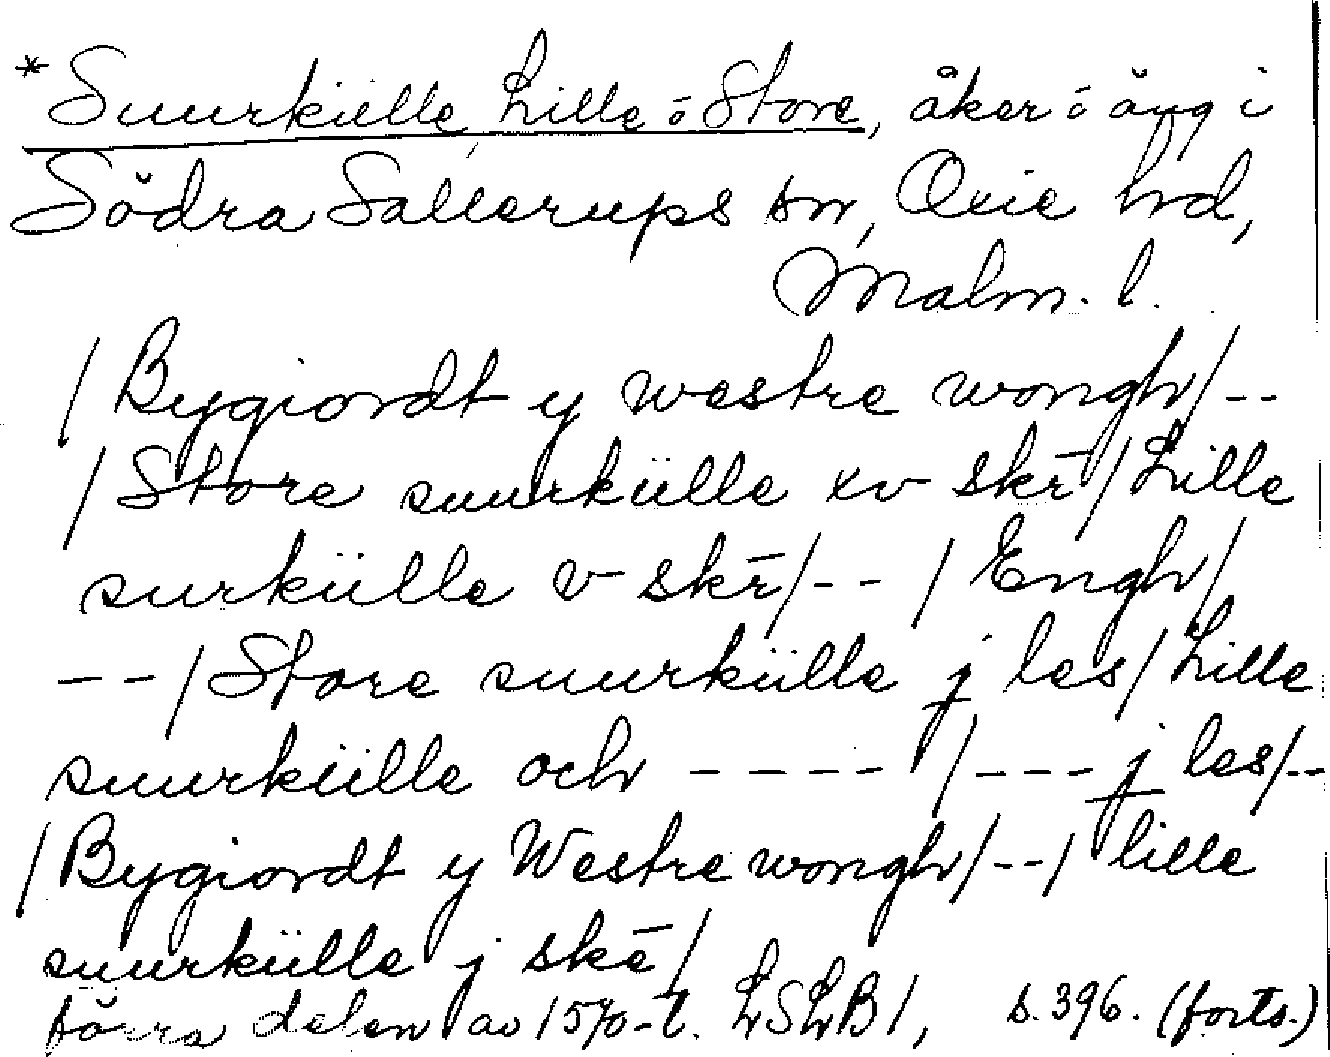 *Suurkülle, Lille ó Store, åker ó äng i
Södra Sallerups sn, Oxie hd,
Malm. l.
/Bygiordt y westre wongh/--
/Store suurkülle xv skr̄/Lille
surkülle v skr̄/--/Engh/
--/Store suurkülle j les/Lille
suurkülle och ----/---j les/--
/Bygiordt y Westre wongh/--/lille
suurkülle j skē/
förra delen av 1570-t. LSLB1, s.396. (forts.)